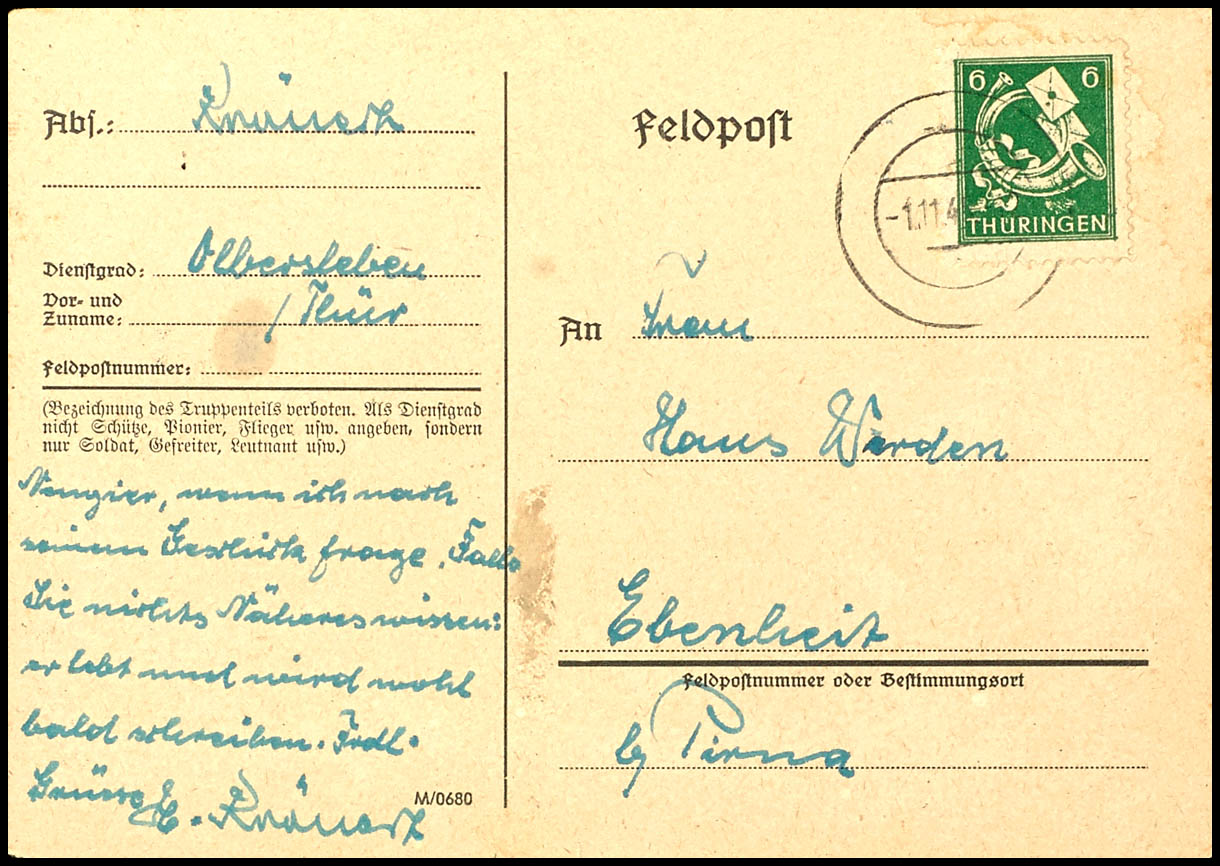 Abs.: Krönert
Dienstgrad: Olbersleben
Vor- und
Zuname: / Thür
Feldpostnummer:
(Bezeichnung des Truppenteils verboten. Als Dienstgrad
nicht Schütze, Pionier, Flieger usw. angeben, sondern
nur Soldat, Gefreiter, Leutnant usw.)
Neugier, wenn ich nach
seinem Geschick frage. Falls
Sie nichts Näheres wissen:
er lebt und wird wohl
bald schreiben. Frdl.
Grüsse E. Krönert
M/0680
Feldpost
6 6
THÜRINGEN
-1.11.4
An Frau
Hans Werden
Ebenheit
Feldpostnummer oder Bestimmungsort
b/ Pirna